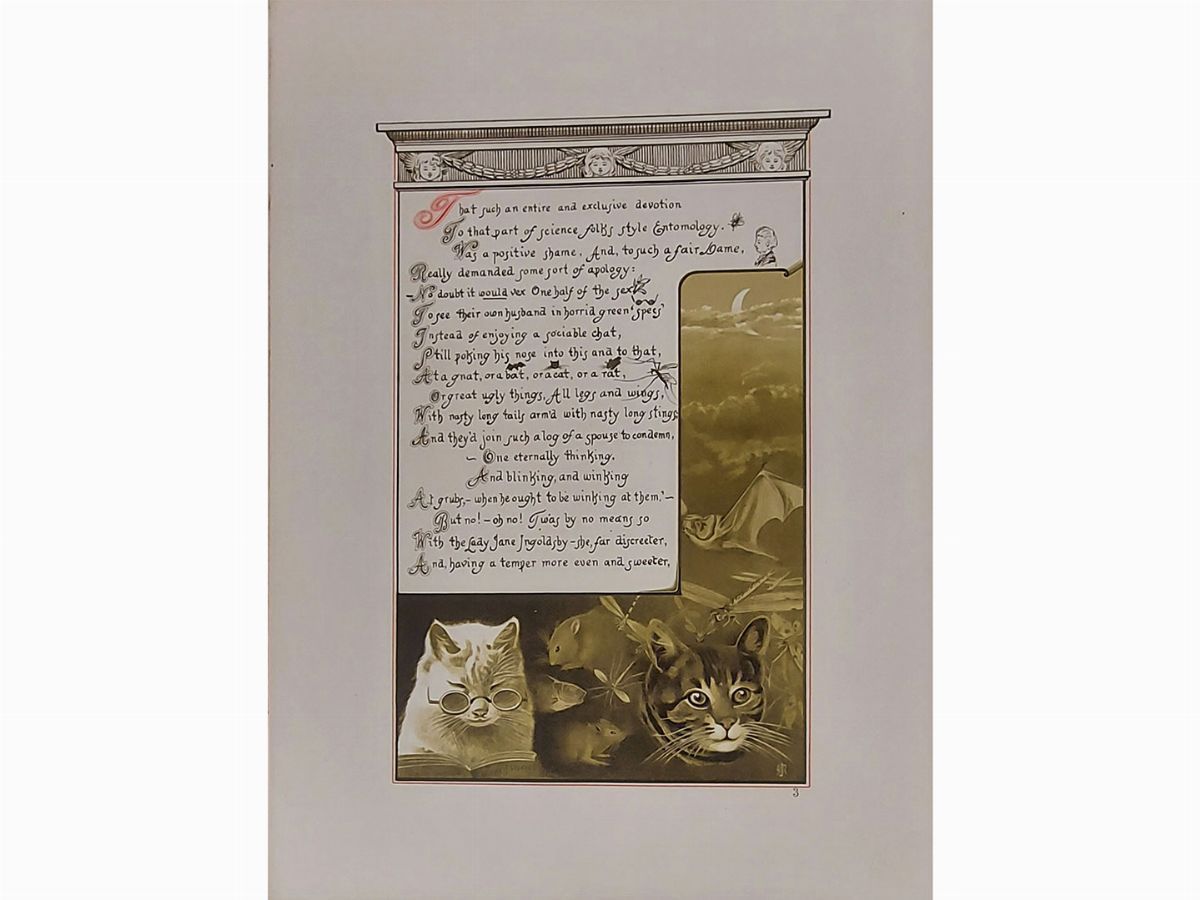 That such an entire and exclusive devotion
To that part of science folks style Entomology.
Was a positive shame, And, to such a fair Dame,
Really demanded some sort of apology:
–No doubt it would vex One half of the sex
To see their own husband in horrid green 'specs'
Instead of enjoying a sociable chat,
Still poking his nose into this and to that,
At a gnat, or a bat, or a cat, or a rat,
Or great ugly things, All legs and wings,
With nasty long tails arm'd with nasty long stings
And they'd join such a log of a spouse to condemn,
– One eternally thinking.
And blinking, and winking
At grubs,– when he ought to be winking at them.'–
But no!– oh no! 'Twas by no means so
With the Lady Jane Ingoldsby – she, far discreeter,
And, having a temper more even and sweeter,
3